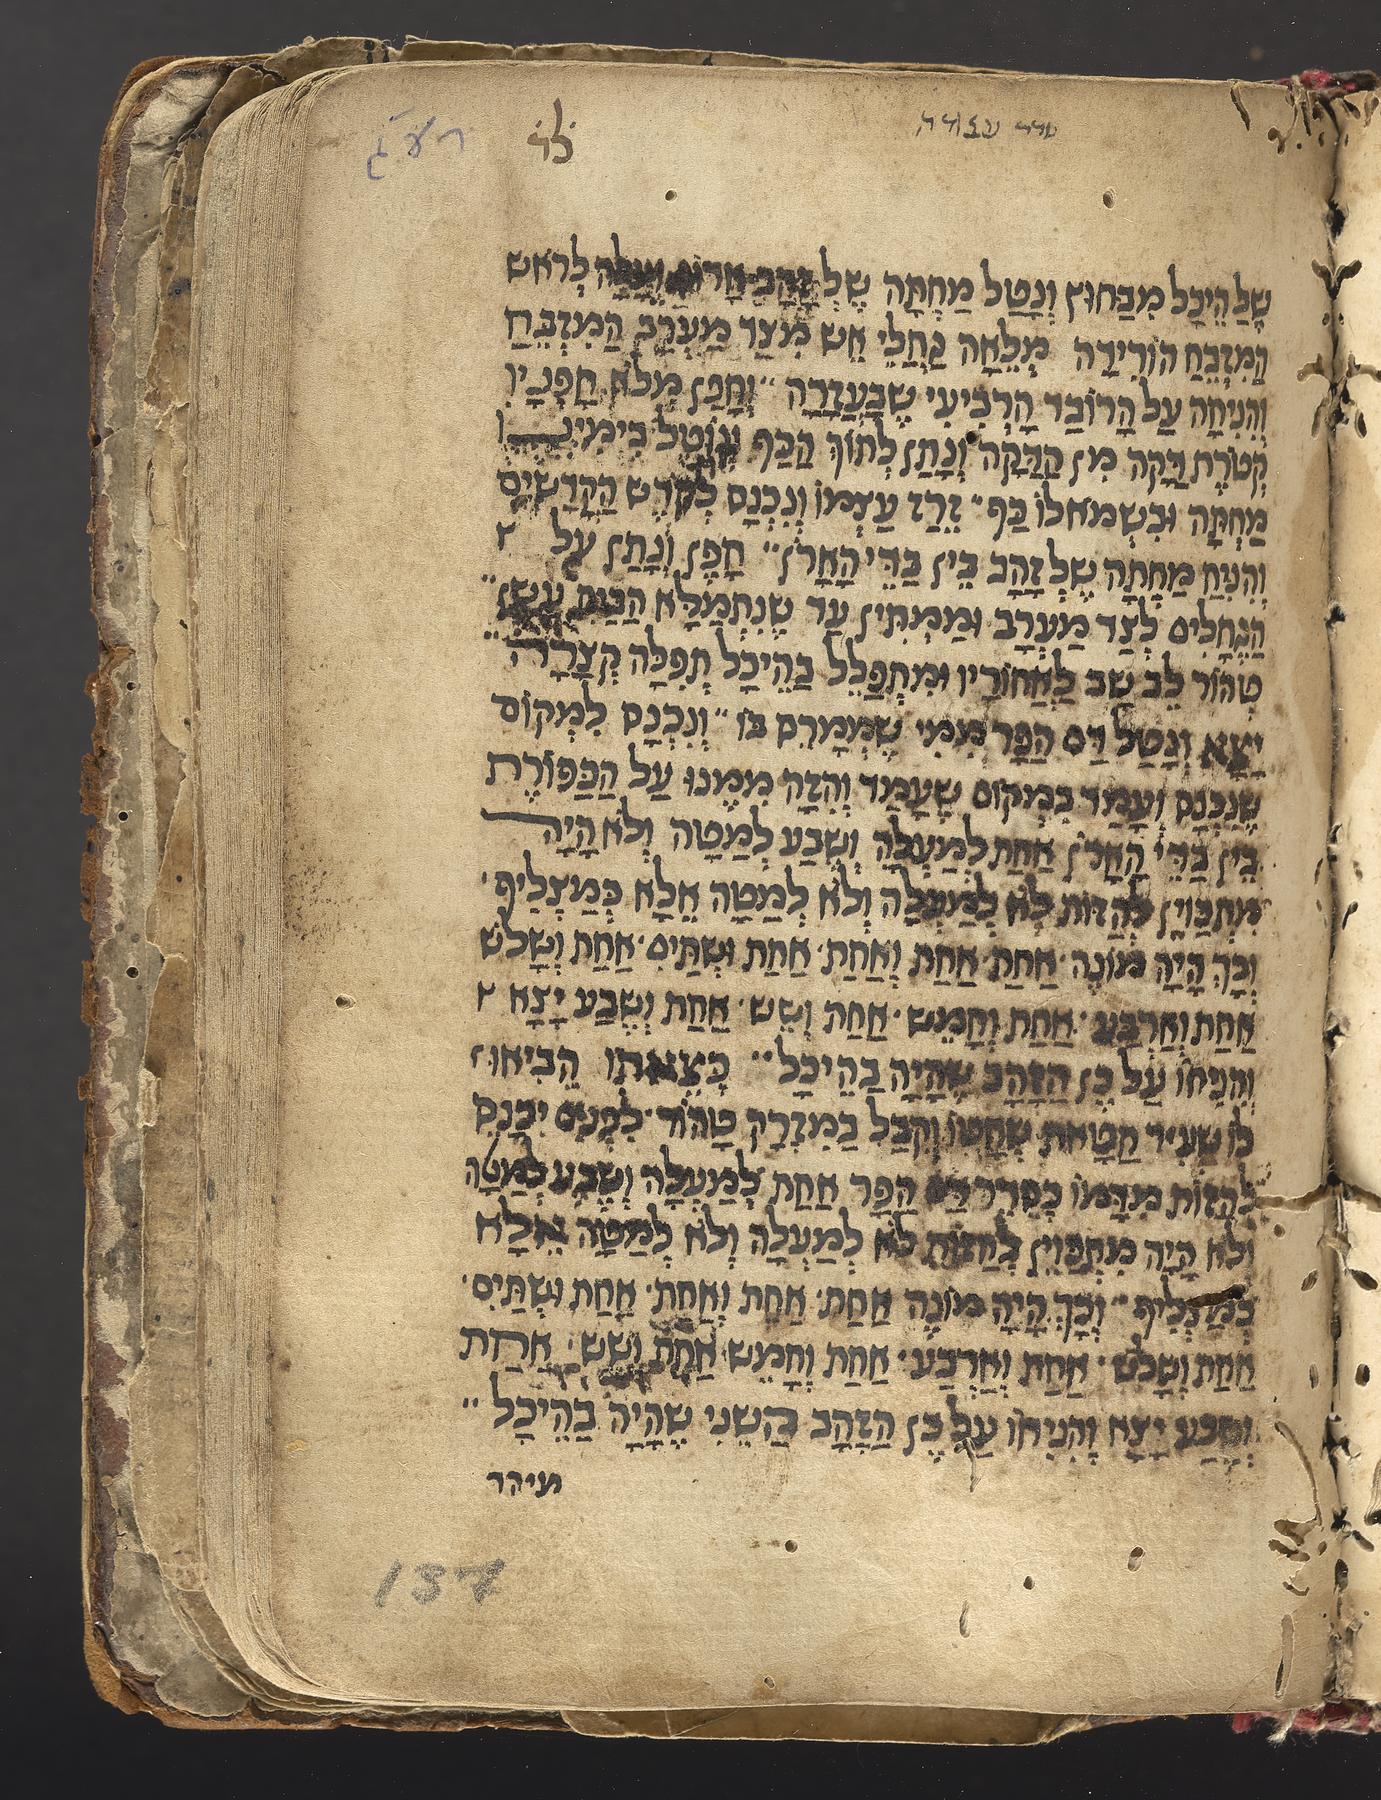 סדר עבודה
לד
רעג
שֶׁלַהֵיכָל מִבַּחוּץ וְנָטַל מַחְתָּה שֶׁל זָהָב אָדוֹם וְעָלָה לְראש
הַמִזְבֵּחַ הוֹרִידָה מְלֵאָה גַּחֲלֵי אֵש מִצַד מַעֲרָב הַמִזְבֵּחַ
וְהִנִיחָה עַל הָרוֹבַד הָרְבִיעִי שֶׁבָּעֲזָרָה וְחָפַן מְלֹא חָפְנָיו
קְטוֹרֶת דַּקָה מִן הַדַּקָה וְנָתַן לְתוֹךְ הַכַּף וְנוֹטֵל בִּימִינוֹ
מַחְתָּה וּבִשְׂמֹאלוֹ כַּף זֵרַז עַצְמוֹ וְנִכְנָס לְקֹדֶש הַקֳדָשִׁים
וְהִנִיחַ מַחְתָּה שֶׁל זָהָב בֵּין בַּדֵּי הָאָרֹן חָפַן וְנָתַן עַל
הַגֶּחָלִים לְצַד מַעֲרָב וּמַמְתִּין עַד שֶׁנִתְמַלֵא הַבַּיִת עָשָׁן
טְהוֹר לֵב שב לַאֲחוֹרָיו וּמִתְפַּלֵל בַּהֵיכָל תְפִלָּה קְצָרָה
יָצָא וְנָטַל דַּם הַפָּר מִמִי שֶׁמְּמָרֵס בּוֹ וְנִכְנָס לִמְקוֹם
שֶׁנִכְנָס וְעָמַד בִּמְקוֹם שֶׁעָמַד וְהִזָה מִמֶנּוּ עַל הַכַּפּוֹרֶת
בֵּין בַּדֵּי הָאָרֹן אַחַת לְמַעְלָה וְשֶׁבַע לְמַטָה וְלֹא הָיָה
מִתְכַּוֵין לְהַזּוֹת לֹא לְמַעְלָה וְלֹא לְמַטָה אֶלָא כְּמַצְלִיף
וְכָךְ הָיָה מוֹנֶה אַחַת אַחַת וְאַחַת אַחַת וּשְׁתַּיִם אַחַת וְשָׁלֹש
אַחַת וְאַרְבַּע אַחַת וְחָמֵש אַחַת וָשֵׁש אַחַת וְשֶׁבַע יָצָא
וְהִנִיחוֹ עַל כַּן הַזָּהָב שֶׁהָיָה בַּהֵיכָל כְּצֵאתוֹ הֵבִיאוּ
לוֹ שְׂעִיר חַטָּאת שְׁחָטוֹ וְקִבֵּל בְּמִזְרָק טָהוֹר לִפְנִים יִכָּנֵס
לְהַזּוֹת מִדָּמוֹ כְּסֵדֶר דַּם הַפָּר אַחַת לְמַעְלָה וְשֶׁבַע לְמַטָה
וְלֹא הָיָה מִתְכַּוֵין לְהַזּוֹת לֹא לְמַעְלָה וְלֹא לְמַטָה אֶלָא
כְּמַצְלִיף וְכָךְ הָיָה מוֹנֶה אַחַת אַחַת וְאַחַת אַחַת וּשְׁתַּיִם
אַחַת וְשָׁלֹש אַחַת וְאַרְבַּע אַחַת וְחָמֵש אַחַת וָשֵׁש אַחַת
וְשֶׁבַע יָצָא וְהִנִיחוֹ עַל כַּן הַזָּהָב הַשֵּׁנִי שֶׁהָיָה בַּהֵיכָל
מיהר
137